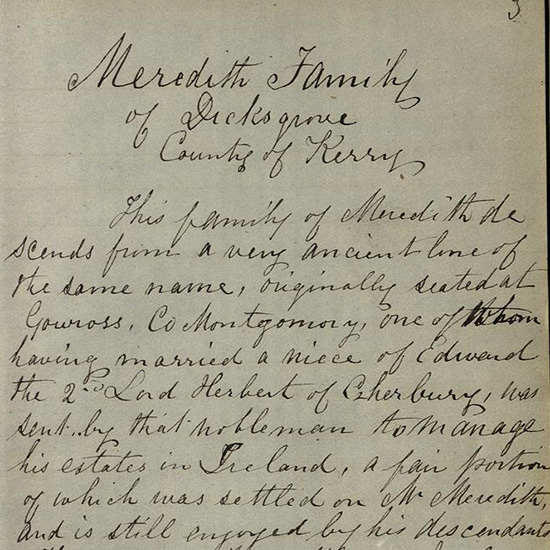 3
Meredith Family
of Dicksgrove
County of Kerry
This family of Meredith de
scends from a very ancient line of
the same name, originally seated at
Gowross, Co Montgomory, one of whom
having married a niece of Edward
the 2nd Lord Herbert of Cherbury, was
sent by that nobleman to manage
his estates in Ireland, a fair portion
of which was settled on Mr Meredith,
and is still enjoyed by his descendants